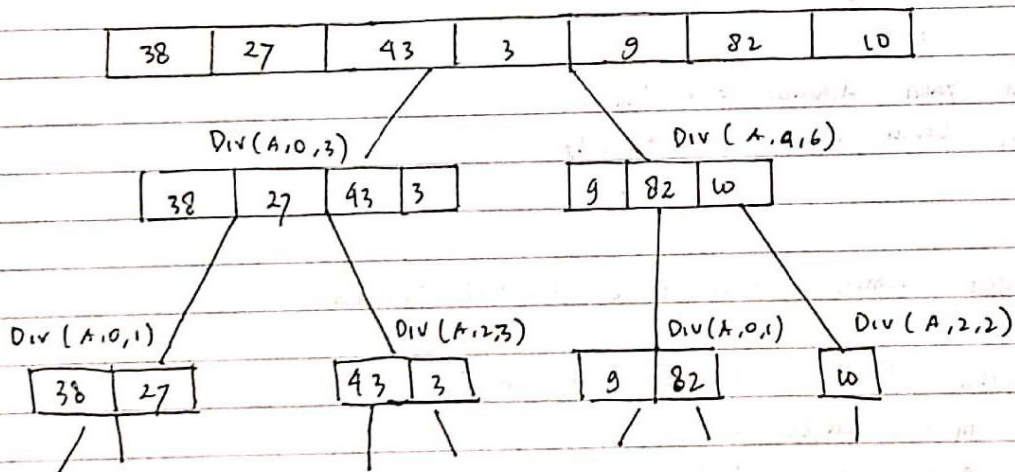 38 27 43 3 9 82 10
Div(A,0,3) Div(A,4,6)
38 27 43 3 9 82 10
Div(A,0,1) Div(A,2,3) Div(A,0,1) Div(A,2,2)
38 27 43 3 9 82 10